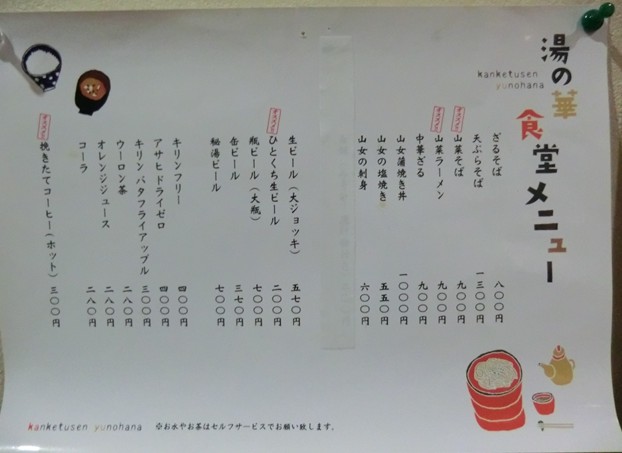 湯の華
kanketusen
yunohana
食堂メニュー
ざるそば 八〇〇円
天ぷらそば 一三〇〇円
オススメ 山菜そば 九〇〇円
オススメ 山菜ラーメン 九〇〇円
中華ざる 九〇〇円
山女蒲焼き丼 一〇〇〇円
山女の塩焼き 五五〇円
山女の刺身 六〇〇円
生ビール（大ジョッキ） 五七〇円
オススメ ひとくち生ビール 二〇〇円
瓶ビール（大瓶） 七〇〇円
缶ビール 三七〇円
秘湯ビール 七〇〇円
キリンフリー 四〇〇円
アサヒドライゼロ 四〇〇円
キリンバタフライアップル 三〇〇円
ウーロン茶 二八〇円
オレンジジュース 二八〇円
コーラ 二八〇円
オススメ 挽きたてコーヒー（ホット） 三〇〇円
kanketusen yunohana ※お水やお茶はセルフサービスでお願い致します。